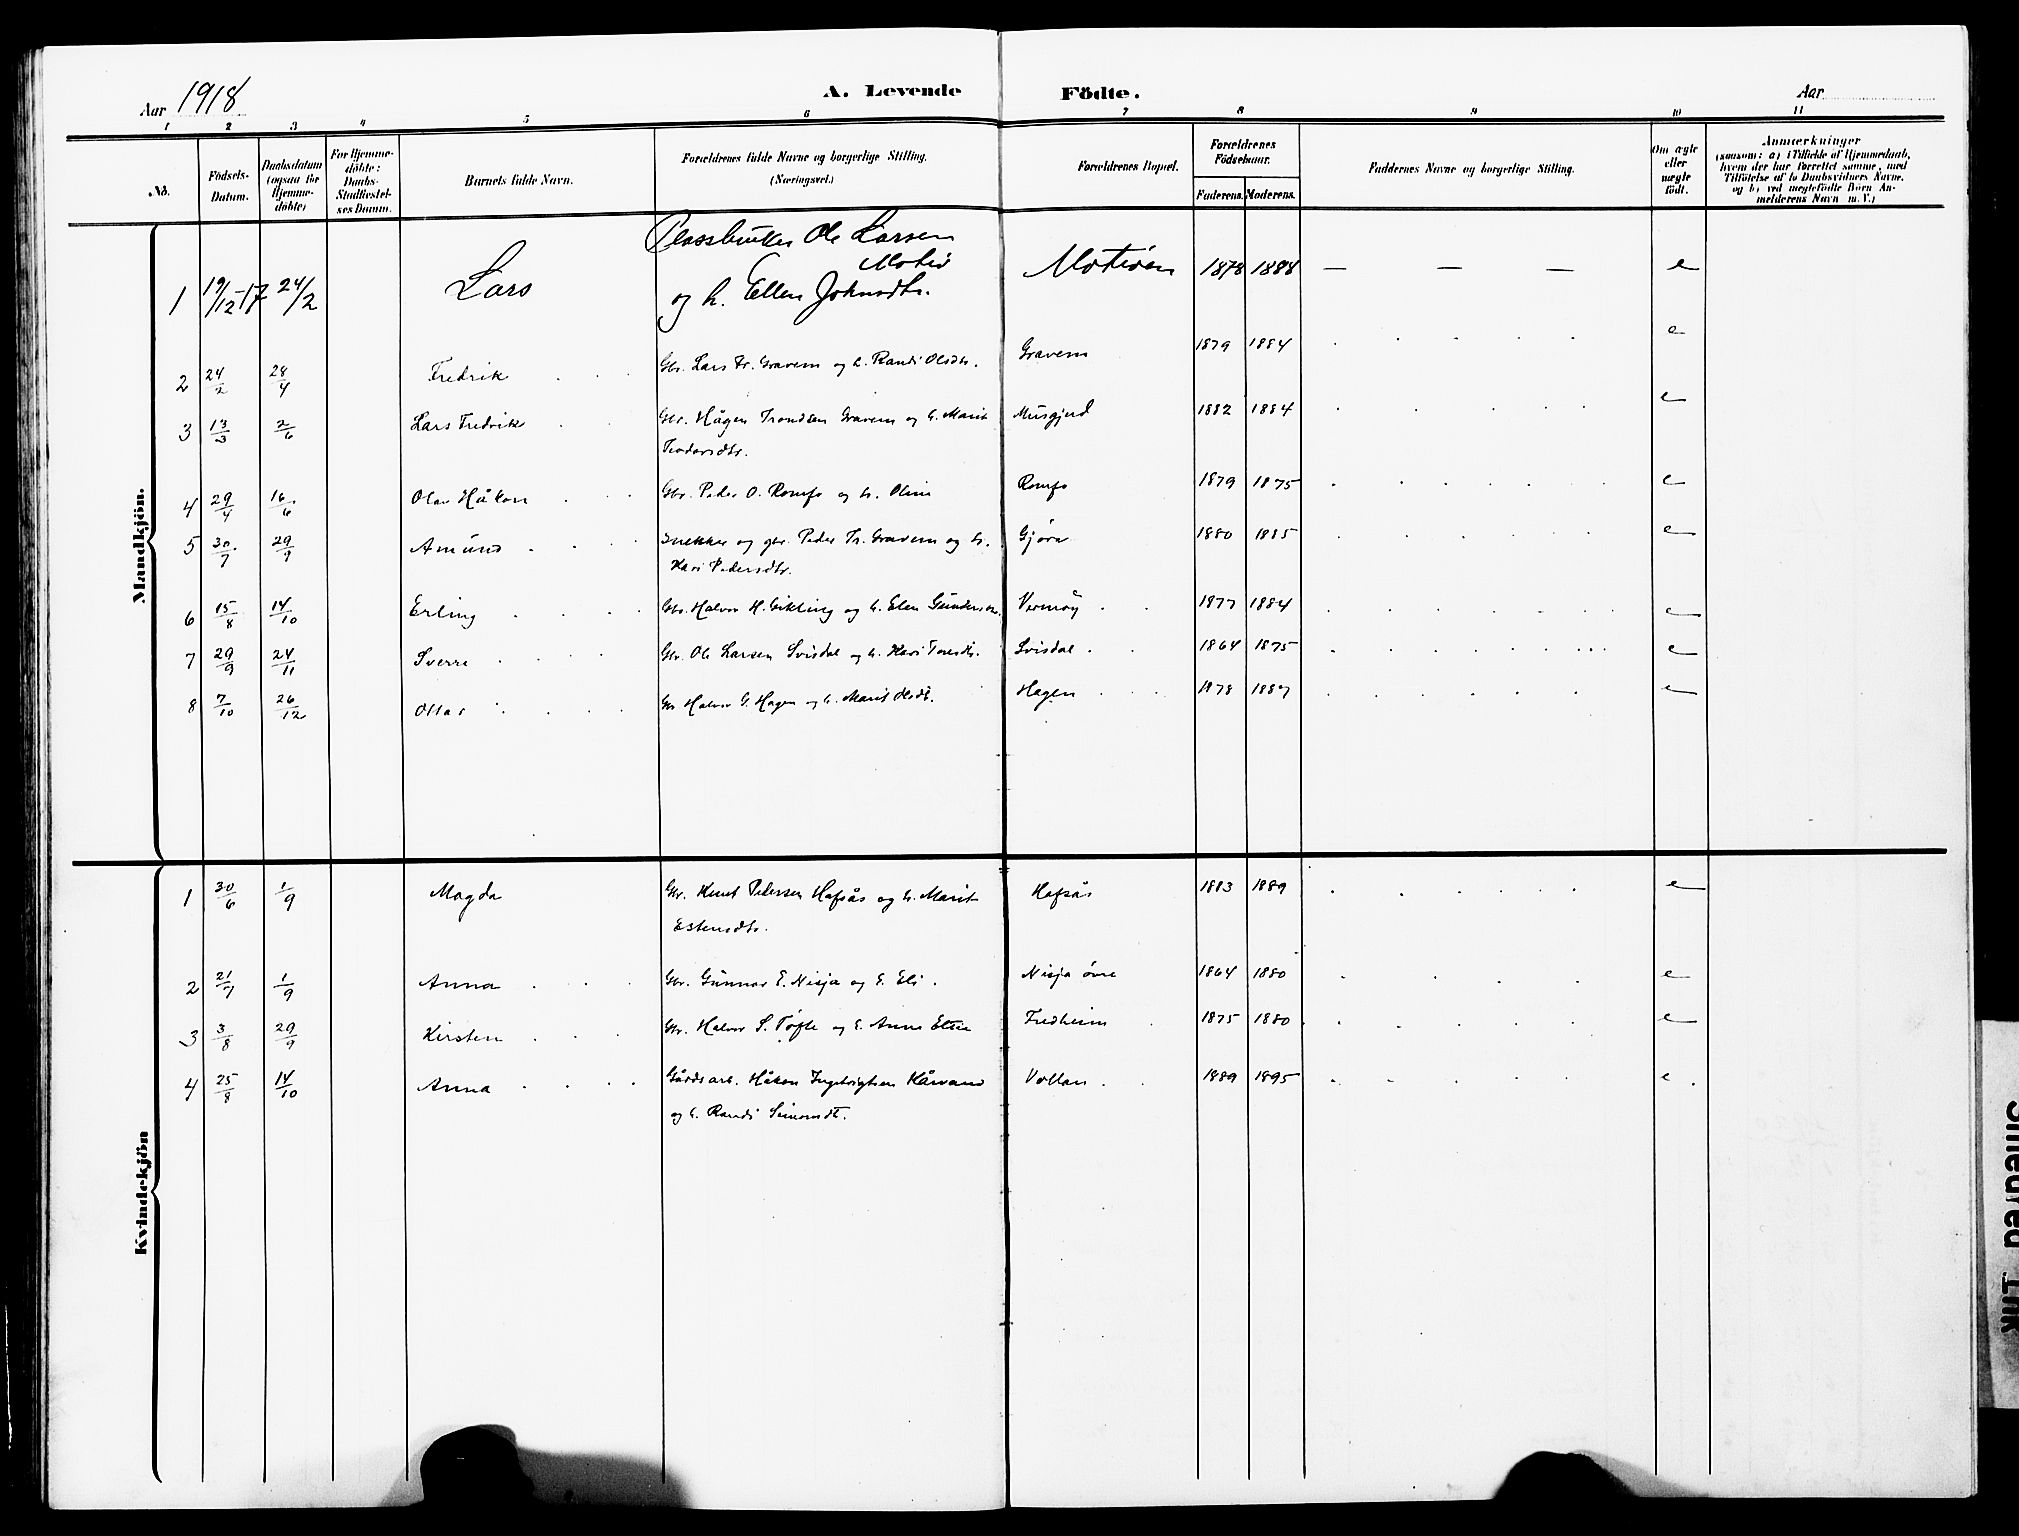 Aar 1918
A. Levende Födte.
Aar
1 2 3 4 5 6 7 8 9 10 11
No.
Födsels-Datum.
Daabsdatum (ogsaa for Hjemme-döbte)
For Hjemme-döbte: Daabs-Stadfæstel-ses Datum.
Barnets fulde Navn.
Forældrenes fulde Navne og borgerlige Stilling. (Næringsvei.)
Forældrenes Bopæl.
Forældrenes Födselsaar.
Faderens. Moderens.
Faddernes Navne og borgerlige Stilling.
Om ægte eller uægte födt.
Anmærkninger
(saasom: a) i Tilfælde af Hjemmedaab,
hvem der har forrettet samme, med
Tilföielse af to Daabsvidners Navne,
og b) ved uægtefödte Börn An-
melderens Navn m. V.)
Mandkjön.
Ole Larsen
1 19/12-17 24/2 Lars 1878 1888 — — — e
og h. Ellen Johnsdtr.
2 24/2 28/4 Fredrik Gbr. Lars Tr. Gravem og h. Randi Olsdtr. Gravem 1879 1884 e
3 13/3 2/6 Lars Fredrik Gbr. Hågen Trondsen Gravem og h. Marit Musgjerd 1882 1884 e
4 29/4 16/6 Olav Håkon Gbr. Peder O. Romfo og h. Oline Romfo 1879 1875 e
5 30/7 29/9 Amund Snekker og gbr. Peder Tr. Gravem og h. Gjøra 1880 1885 e
Kari Pedersdtr.
6 15/8 14/10 Erling Gbr. Halvor H. Vikling og h. Elen Vermøy 1877 1884 e
7 29/9 24/11 Sverre Gbr. Ole Larsen Svisdal og h. Kari Toresdtr. Svisdal 1864 1875 e
8 7/10 26/12 Ottar Gbr Halvor G. Hagen og h. Marit Olsdtr. Hagen 1878 1887 e
Kvindekjön
1 30/6 1/9 Magda Gbr. Knut Pedersen Hafsås og h. Marit Hafsås 1883 1889 e
Estensdtr.
2 21/7 1/9 Anna Gbr. Gunnar E. Nisja og h. Eli. Nisja øvre 1864 1880 e
3 3/8 29/9 Kirsten Gbr. Halvor S. Tofte og h. Anne Fredheim 1875 1880 e
4 25/8 14/10 Anna Gårdsarb. Håkon Ingebrigtsen Kårvand Vollan 1889 1895 e.
og h. Randi Simonsdt.
Smeared Ink